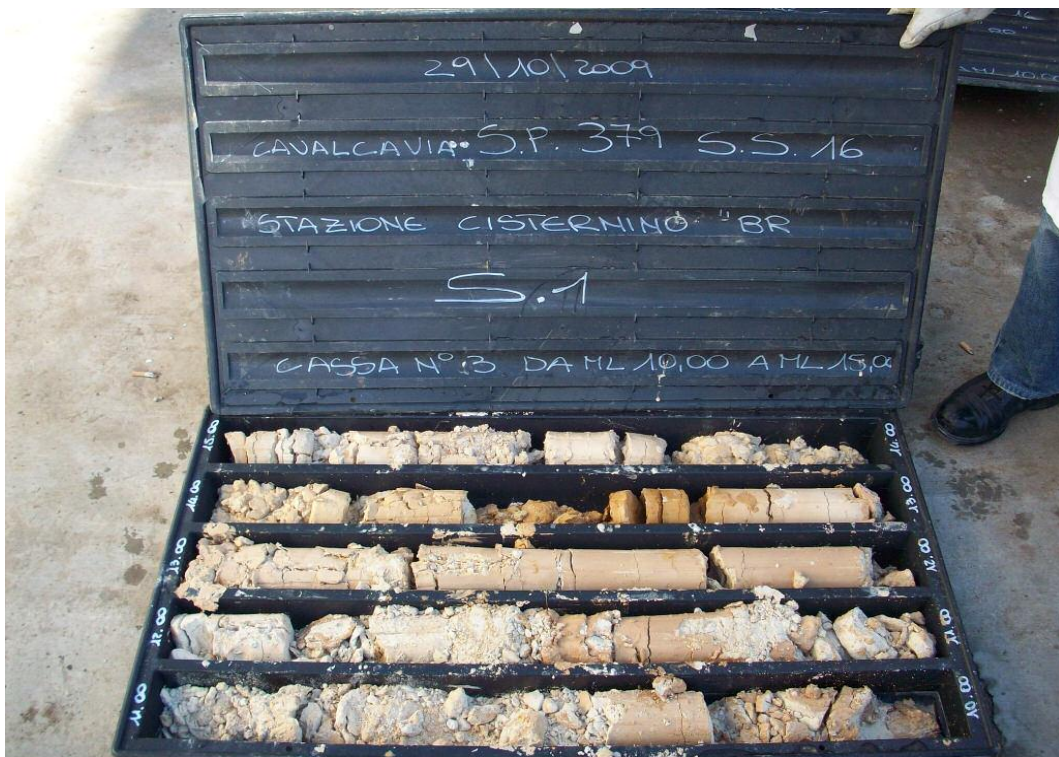 29/10/2009
CAVALCAVIA S.P. 379 S.S. 16
STAZIONE CISTERNINO "BR
S.1
CASSA N° 3 DA ML 10,00 A ML 15,0
15.00
14.00
14.00
13.00
13.00
12.00
12.00
11.00
11.00
10.00